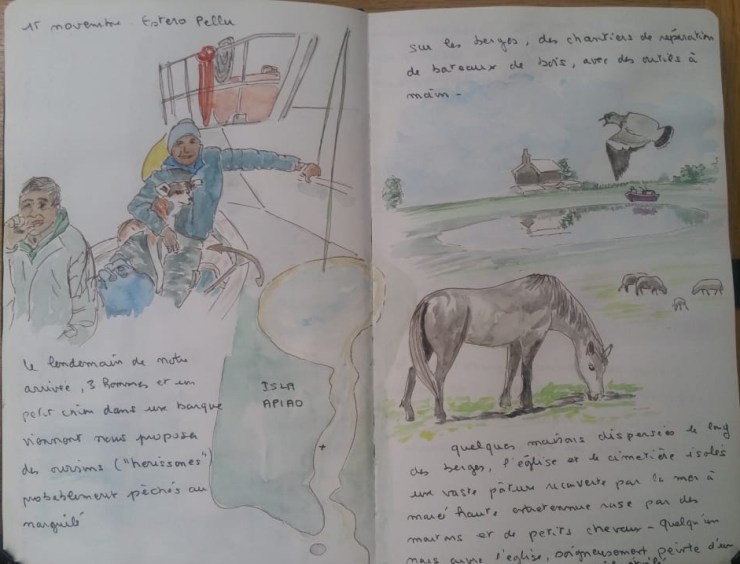 15 novembre. Estero Pellu
le lendemain de notre
arrivée, 3 hommes et un
petit chien dans une barque
viennent nous proposer
des oursins ("herissones")
probablement pêchés au
narguilé
ISLA
APIAO
sur les berges, des chantiers de réparation
de bateaux de bois, avec des outils à
main -
quelques maisons dispersées le long
des berges, l'église et le cimetière isolés
une vaste pâture recouverte par la mer à
marée haute entretenue rase par des
moutons et de petits chevaux - quelqu'un
nous ouvre l'église, soigneusement peinte d'un